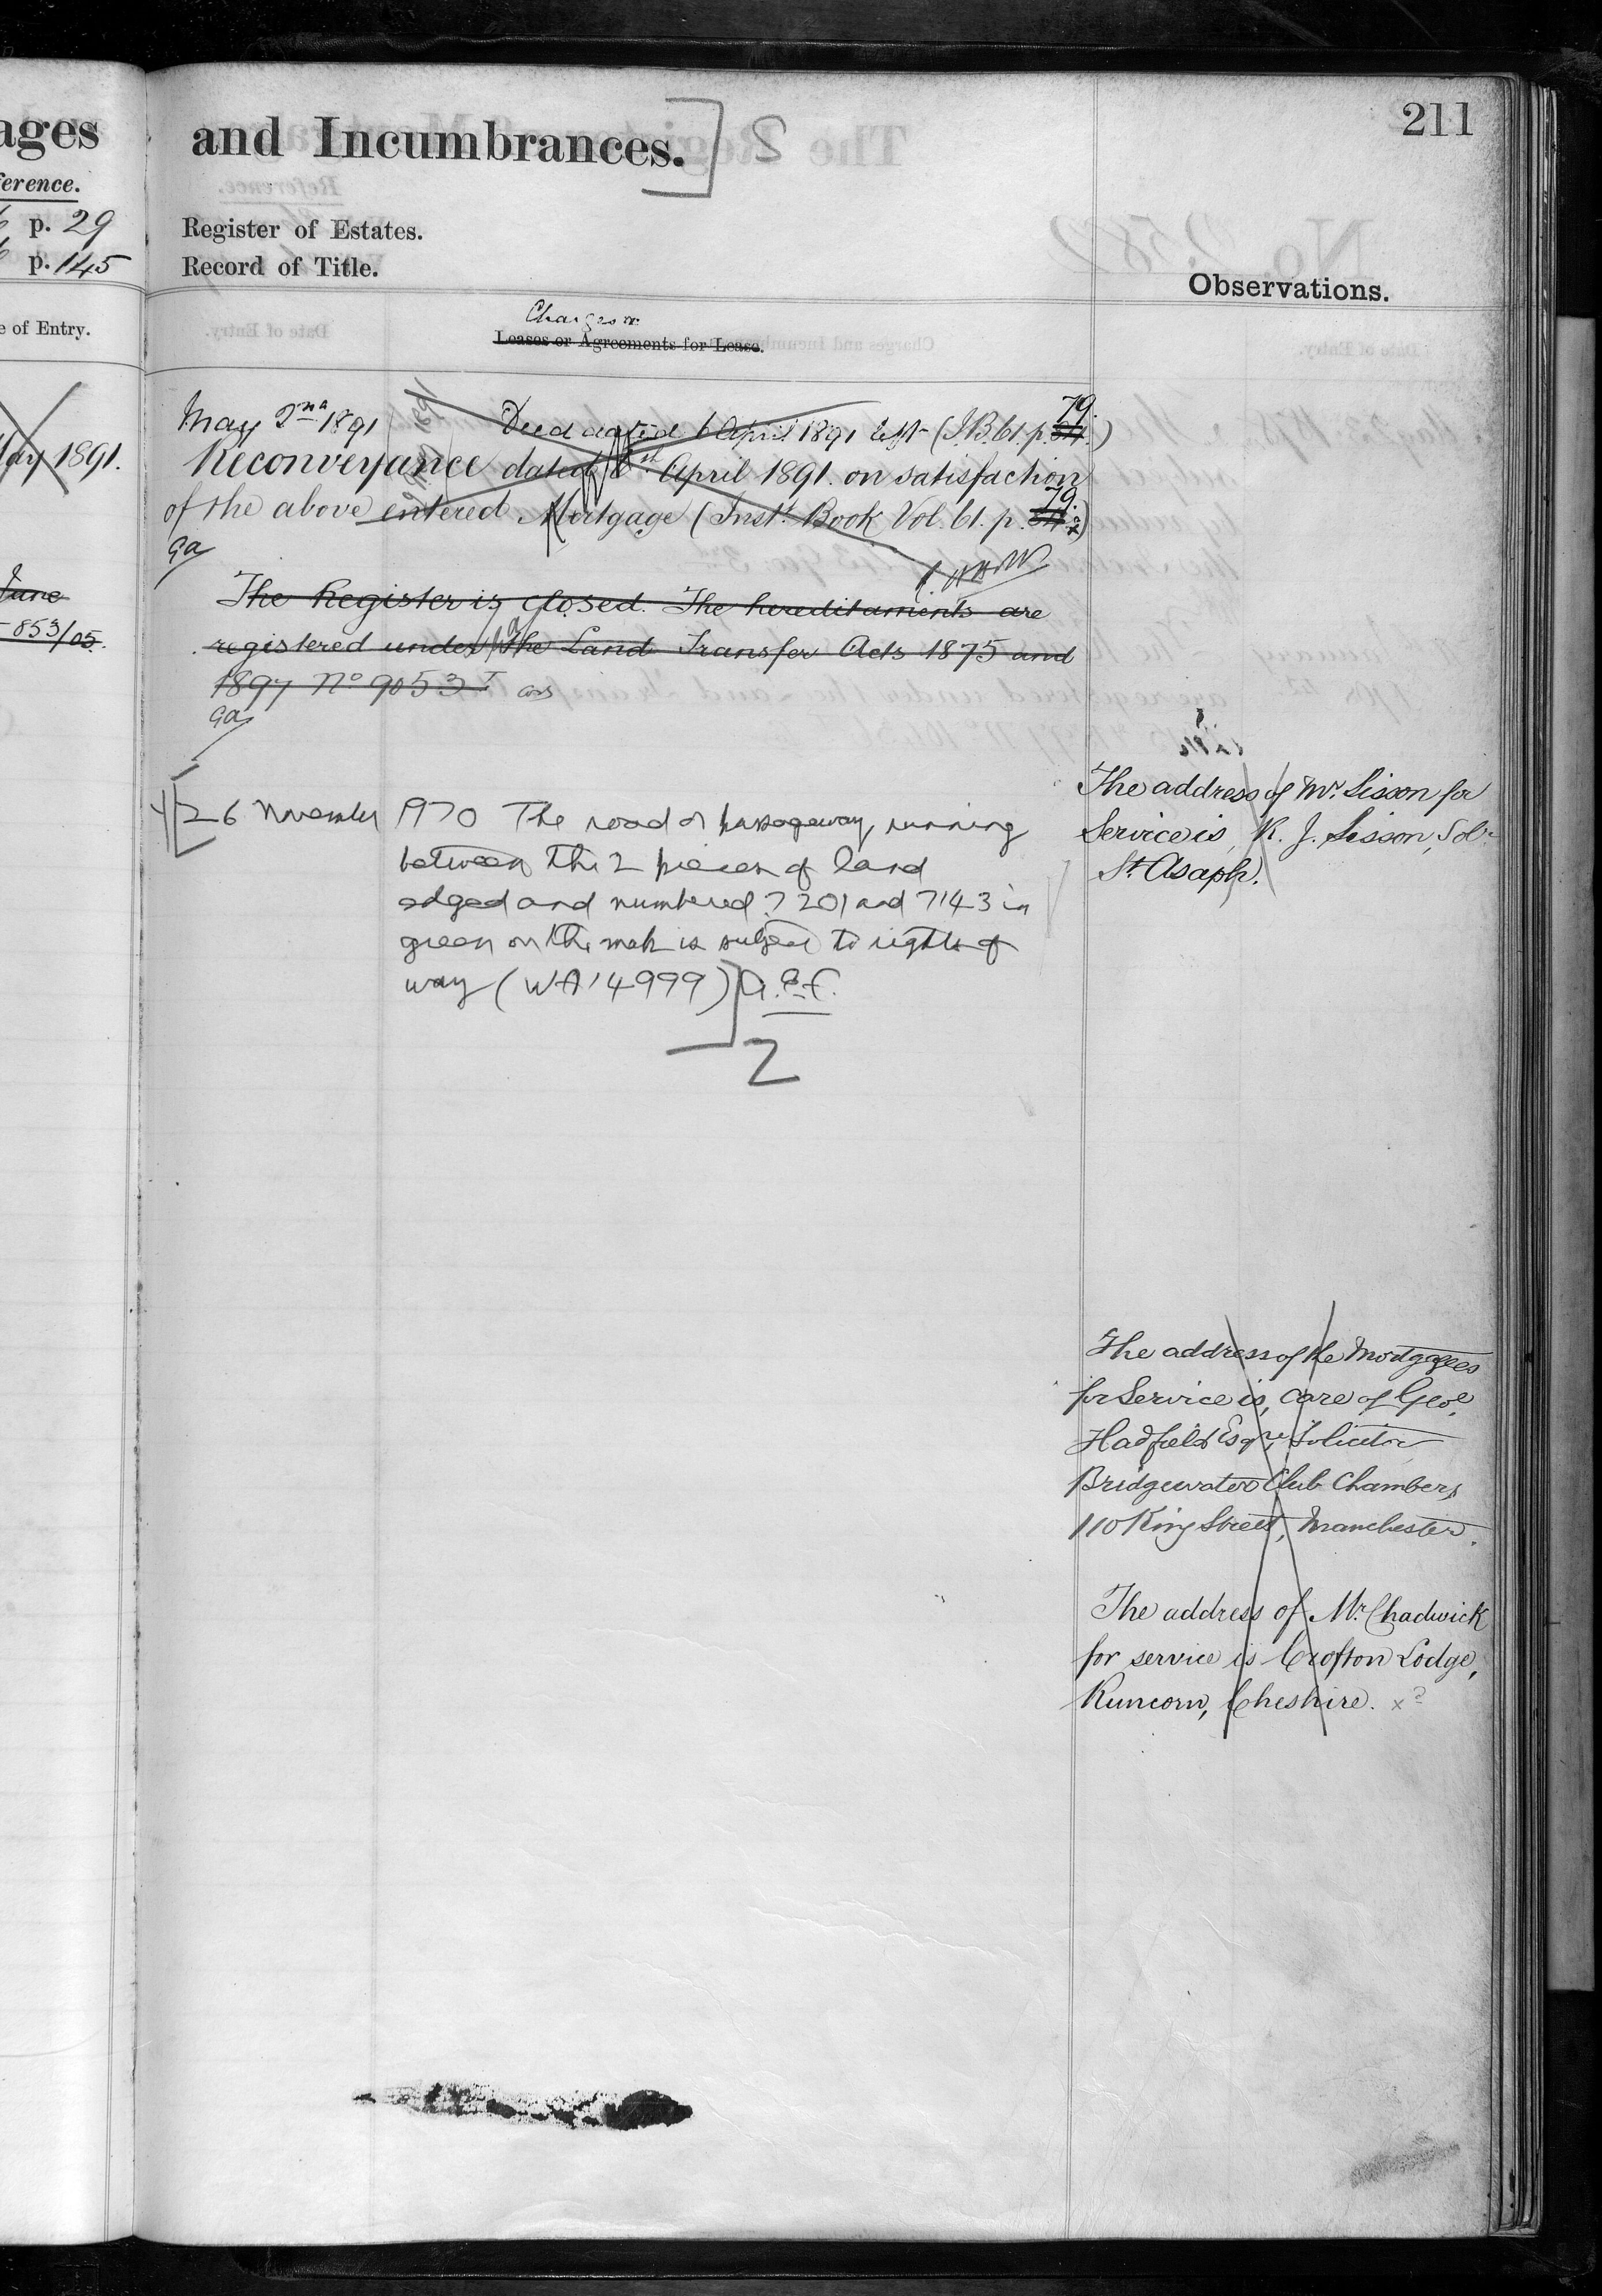 ages
ference.
p. 29
p. 145
e of Entry.
May 1891.
June
853/05.
211
and Incumbrances.] 2
Register of Estates.
Record of Title.
Observations.
Charges or
Leases or Agreements for Lease.
May 2nd 1891 Deed dated 6 April 1891 left (I.B. 61. p. 79.)
Reconveyance dated 1st April 1891. on satisfaction
of the above entered Mortgage (Inst. Book Vol. 61. p. 79.)
ga
The Register is closed. The hereditaments are
registered under the Land Transfer Acts 1875 and
1897 No 9053
ga
26 November 1970 The road or passageway, running
between the 2 pieces of land
edged and numbered 7201 and 7143 in
green on the map is subject to rights of
way (WA 14999)]
2
The address of Mr. Sisson for
Service is, R. J. Sisson, Solr.
St. Asaph.
The address of the Mortgagees
for Service is, care of Geoe.
Hadfield Esqre, Solicitor
Bridgewater Club Chambers,
110 King Street, Manchester.
The address of Mr. Chadwick
for service is Crofton Lodge,
Runcorn, Cheshire. x?